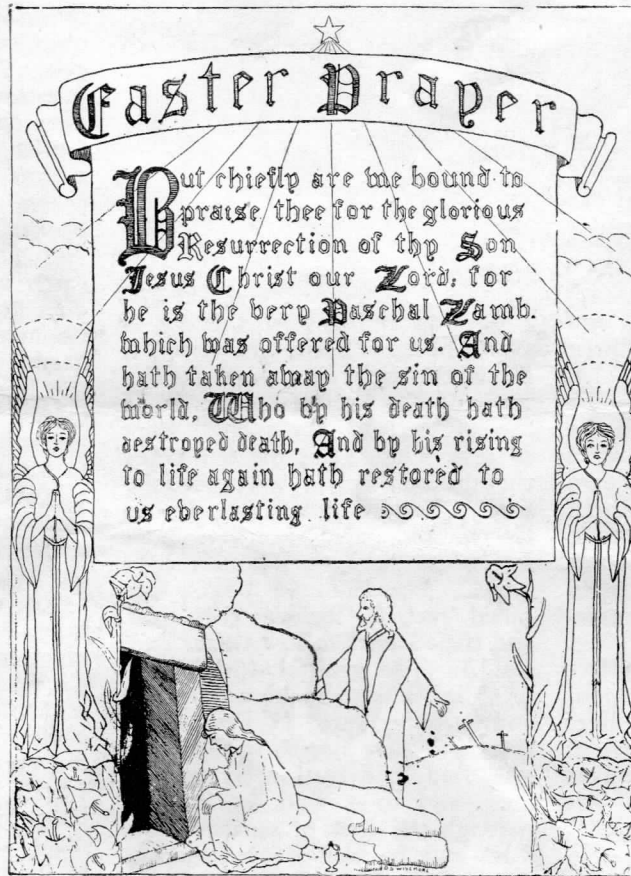 Easter Prayer
But chiefly are we bound to
praise thee for the glorious
Resurrection of thy Son
Jesus Christ our Lord, for
he is the very Paschal Lamb.
which was offered for us. And
hath taken away the sin of the
world, Who by his death hath
destroyed death, And by his rising
to life again hath restored to
us everlasting life